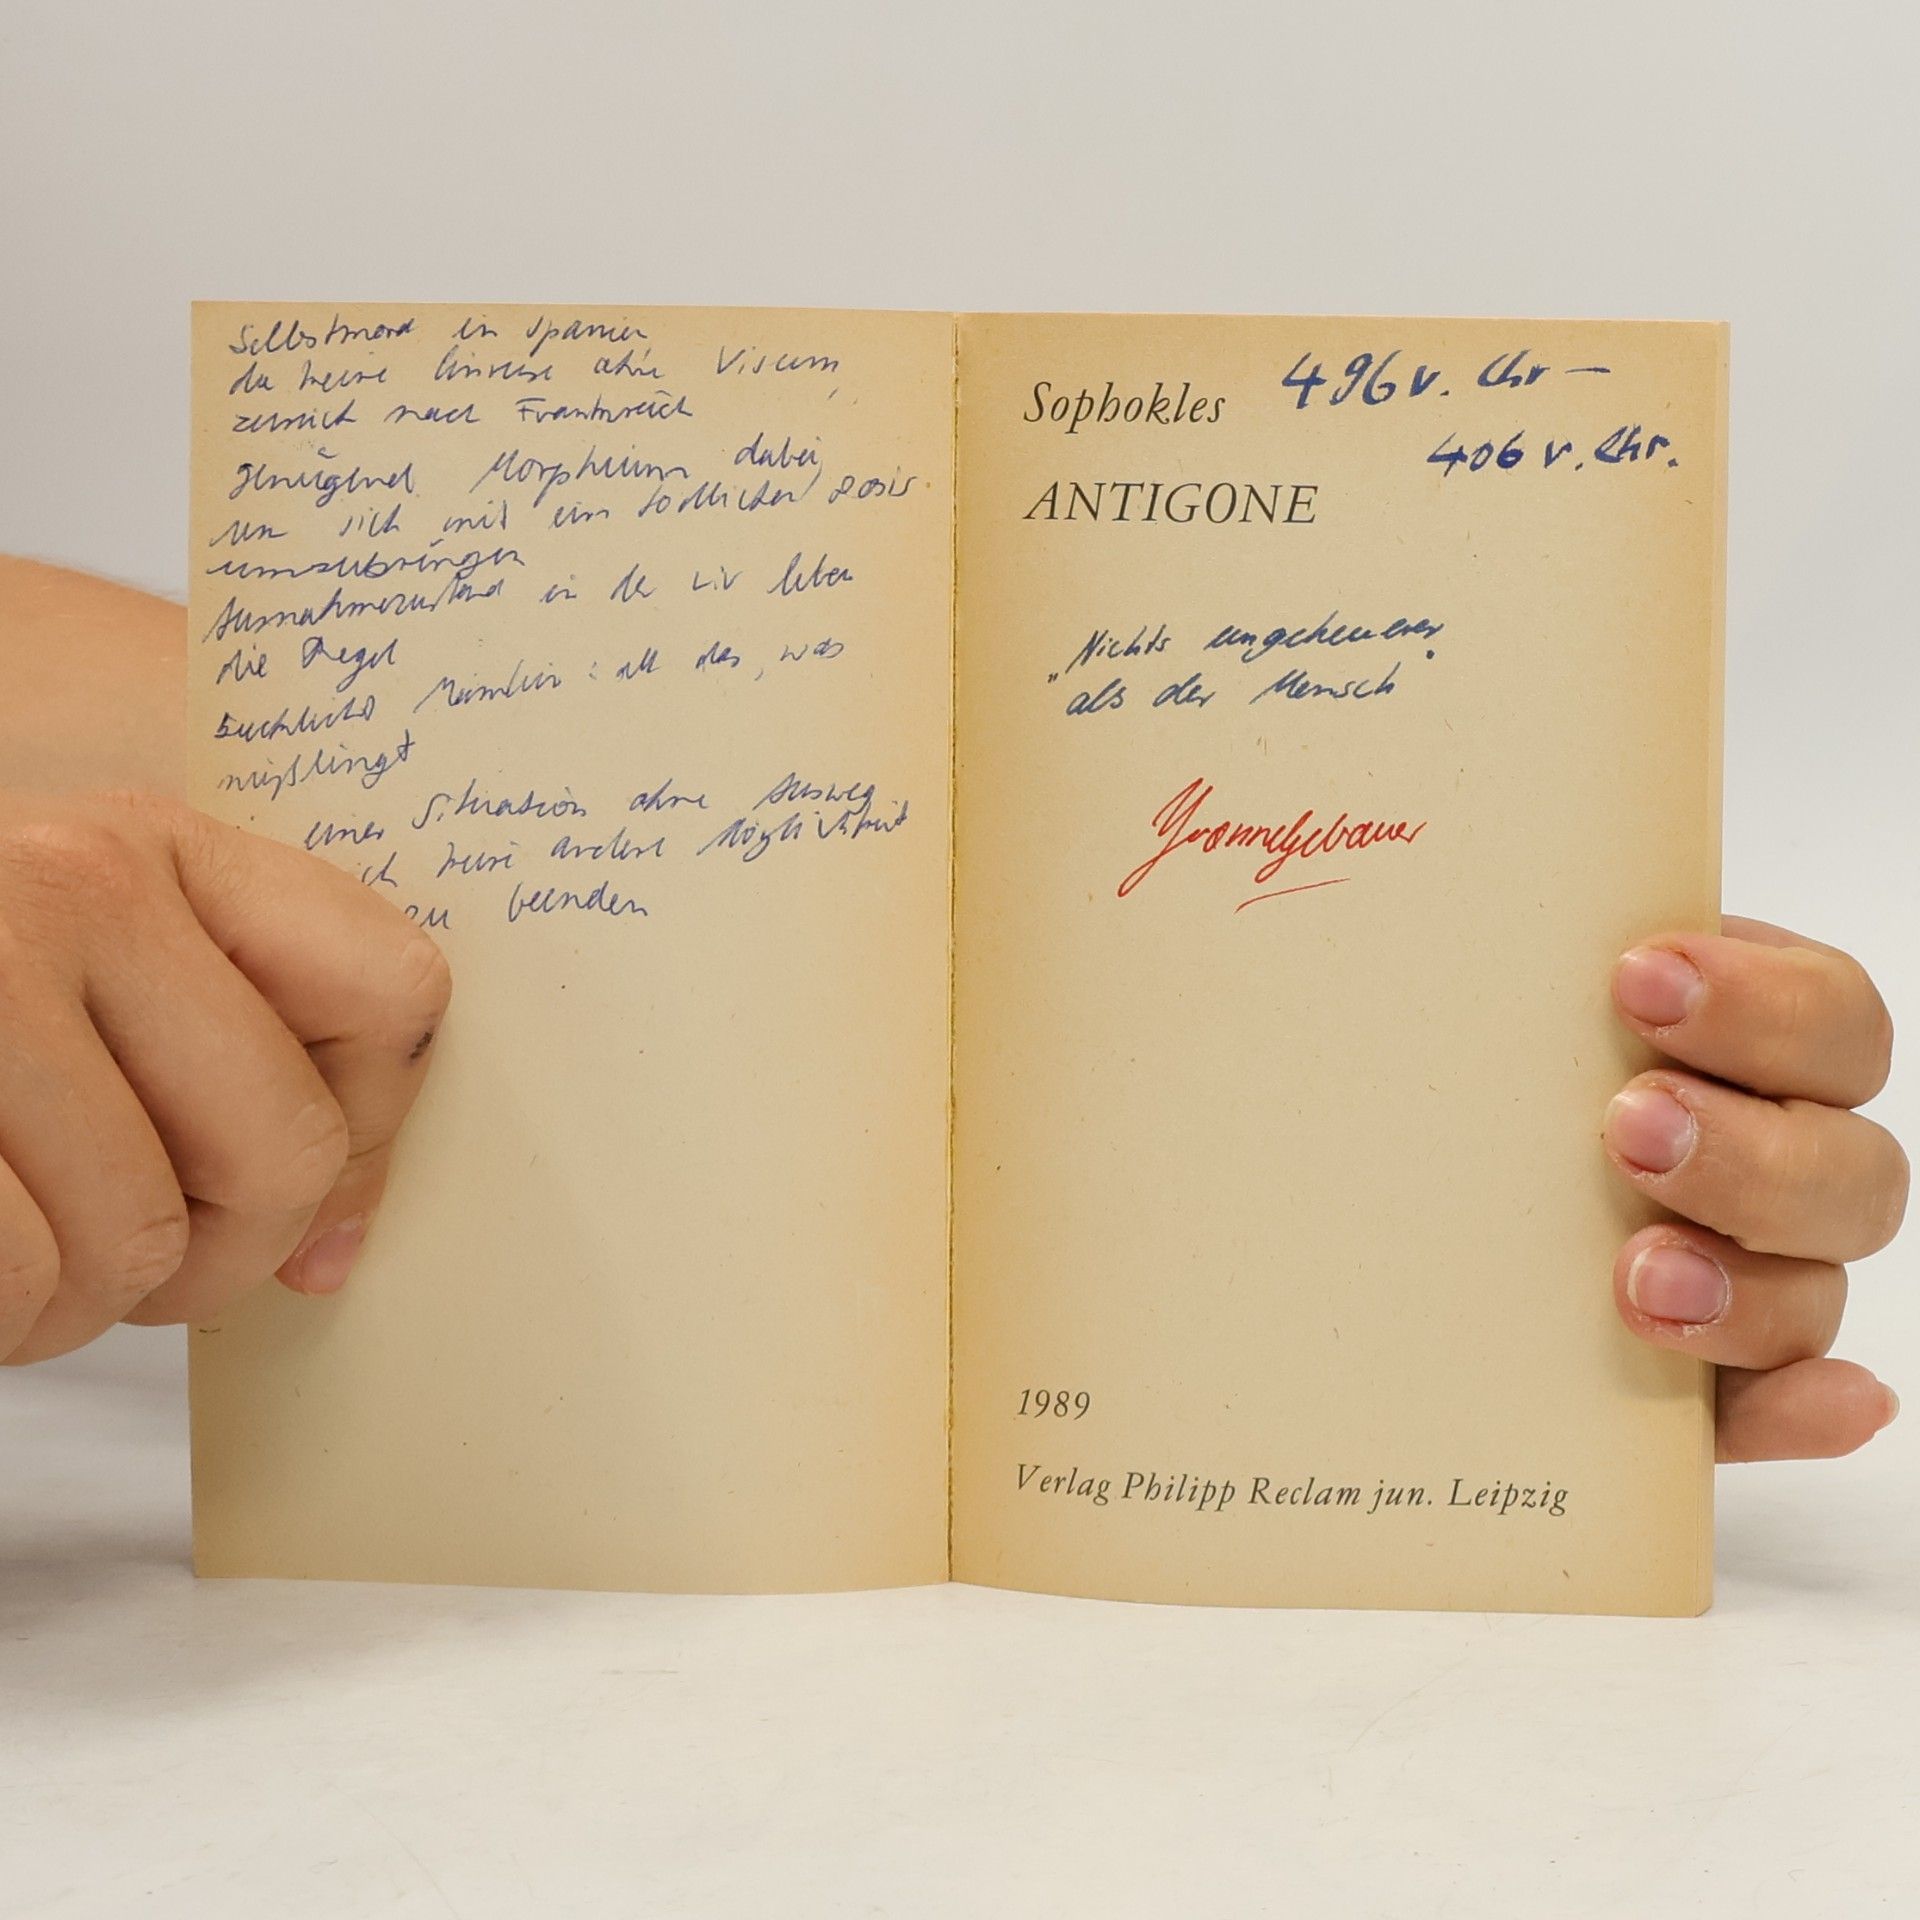 Selbstmord in Spanien
da keine Einreise ohne Visum,
zurück nach Frankreich
genügend Morphium dabei,
um sich mit ein tödlichen Dosis
umzubringen
Ausnahmezustand in der wir leben
die Regel
Männlein: all das, was
mißlingt
einer Situation ohne Ausweg
ich keine andere Möglichkeit
zu beenden
Sophokles 496 v. Chr —
406 v. Chr.
ANTIGONE
"Nichts ungeheuerer
als der Mensch"
Yvonne Gebauer
1989
Verlag Philipp Reclam jun. Leipzig